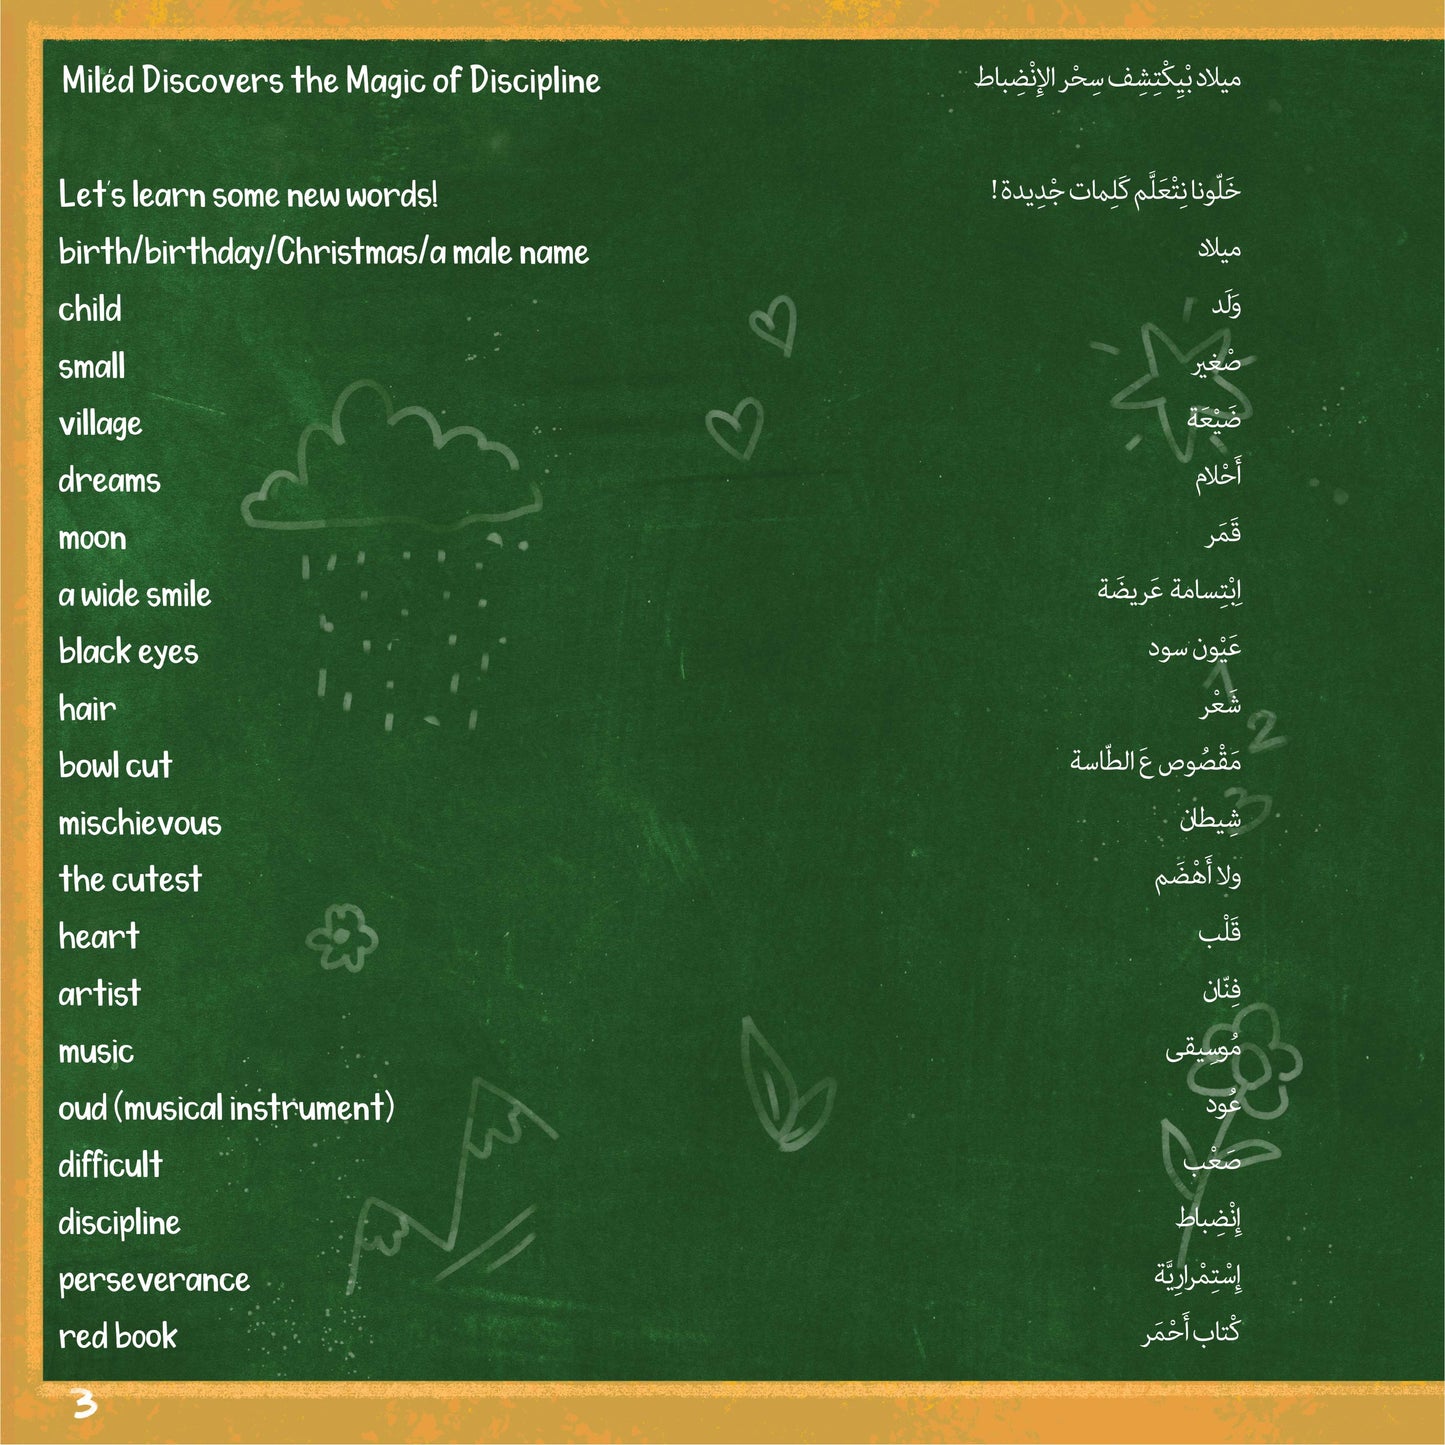 Miléd Discovers the Magic of Discipline ميلاد بْيِكْتِشِف سِحْر الإِنْضِباط
Let's learn some new words! خَلّونا نِتْعَلَّم كَلِمات جْدِيدة!
birth/birthday/Christmas/a male name ميلاد
child وَلَد
small صْغير
village ضَيْعَة
dreams أَحْلام
moon قَمَر
a wide smile اِبْتِسامة عَريضَة
black eyes عَيْون سود
hair شَعْر
bowl cut مَقْصُوص عَ الطّاسة
mischievous شِيطان
the cutest ولا أَهْضَم
heart قَلْب
artist فِنّان
music مُوسِيقى
oud (musical instrument) عُود
difficult صَعْب
discipline إِنْضِباط
perseverance إِسْتِمْرارِيَّة
red book كْتاب أَحْمَر
1
2
3
3